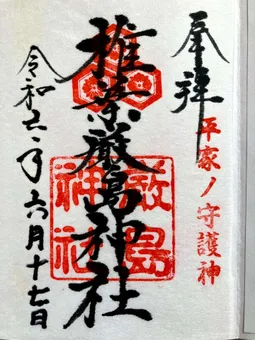 奉拝
平家ノ守護神
椎葉厳島神社
厳島
神社
令和五年六月十七日